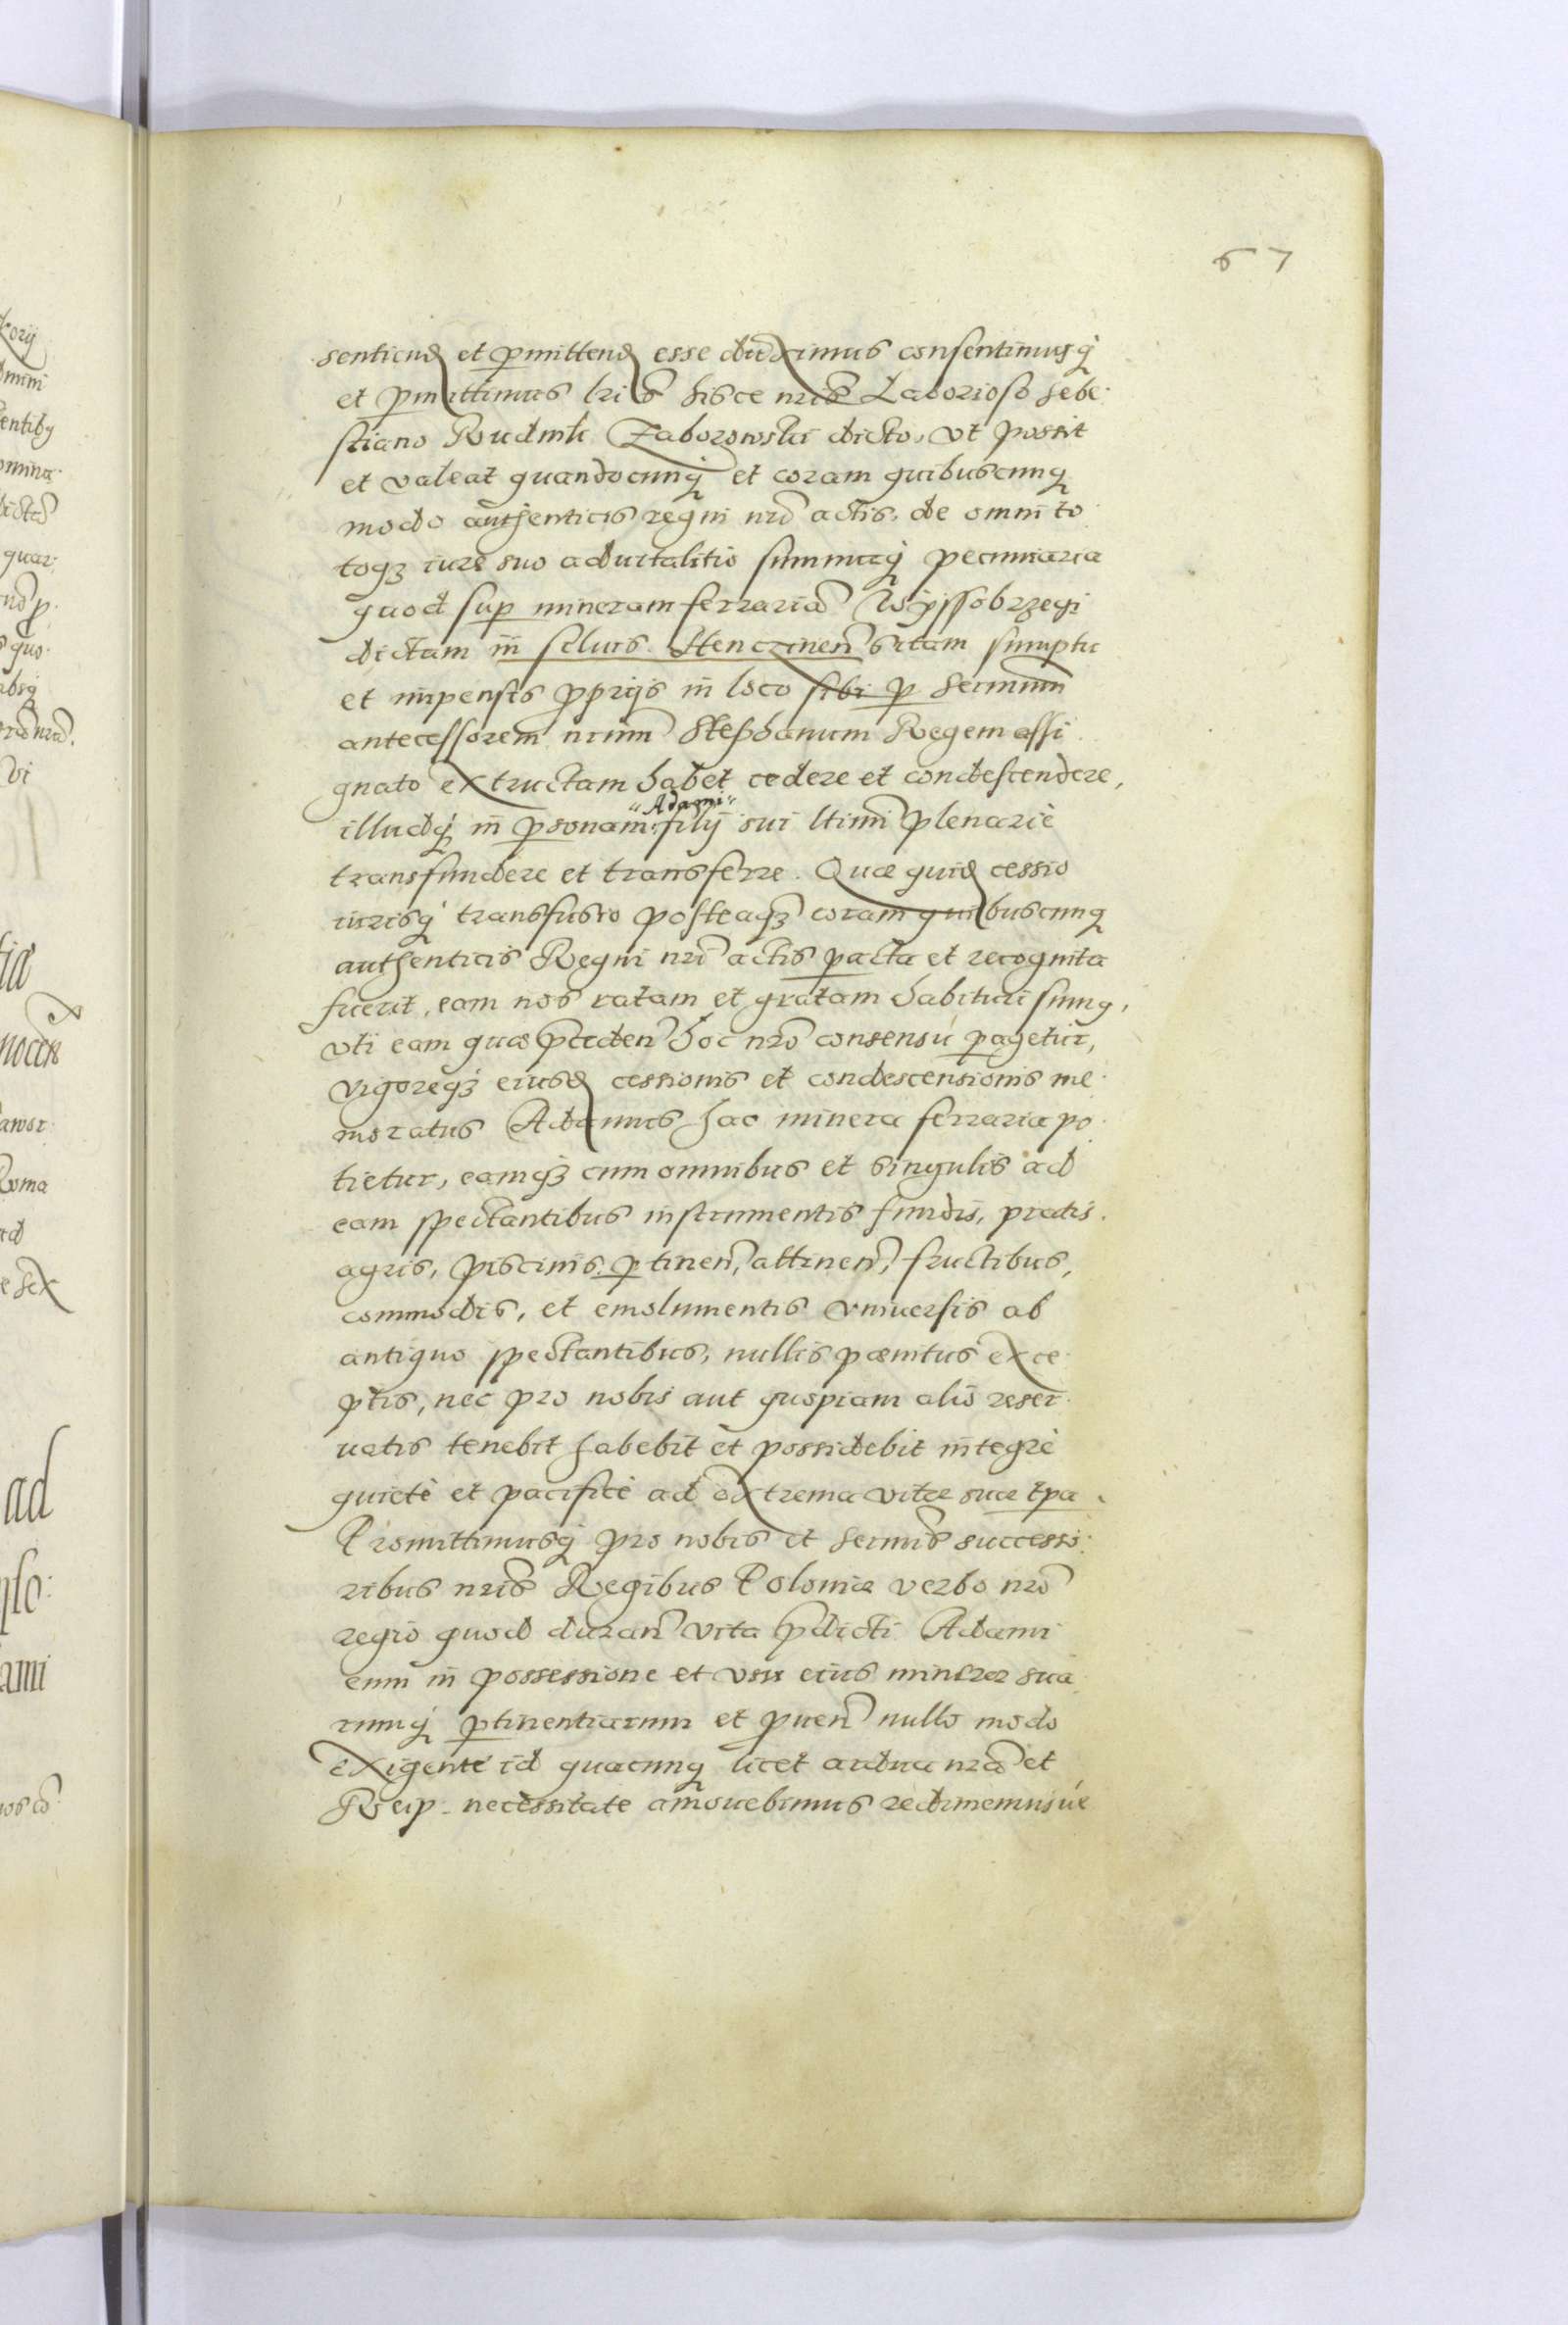 67
sentiend et pmittend esse duximus consentimusq
et pmittimus lris hisce nris Laborioso Seba:
stiano Rudnik Zaborowski dicto, vt possit
et valeat quandocunq et coram quibuscunq
modo authenticis regni nri actis, de omni to
toqz iure suo aduitalitio summaq pecuniaria
quod sup mineram ferraria Wyssobrzegi
dictam in siluis Stenczinen sitam sumptu
et impensis proprijs in loco sibi p Sermum
antecessorem nrum Stephanum Regem assi
gnato extructam habet cedere et condescendere,
illudq in psonam Adami filij sui ltimi plenarie
transfundere et transferre. Quae quid cessio
iurisq transfusio posteaqz coram quibuscunq
authenticis Regni nri actis pacta et recognita
fuerit, eam nos ratam et gratam habituri sumq,
vti eam quae pceden hoc nro consensu pagetur,
vigoreqz eiusd cessionis et condescensionis me:
moratus Adamus hac minera ferraria po:
tietur, eamqz cum omnibus et singulis ad
eam spectantibus instrumentis fundis, pratis.
agris, piscinis, ptinen, attinen, fructibus,
commodis, et emolumentis vniuersis ab
antiquo spectantibus, nullis paenitus exce:
ptis, nec pro nobis aut quopiam alio reser:
uatis tenebit habebit et possidebit integre
quiete et pacifice ad extrema vitae suae tpa.
Promittimusq pro nobis et Sermis successo:
ribus nris Regibus Poloniae verbo nro
regio quod duran vita pdicti Adami
eum in possessione et vsu eius minerae sua
rumq ptinentiarum et prouen nullo modo
exigente id quacunq licet ardua nra et
Reip. necessitate amouebimus redimemusue